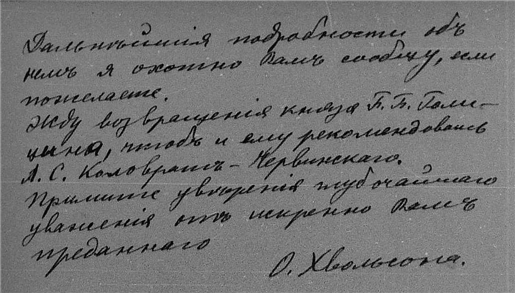 Дальнѣйшія подробности объ
немъ я охотно Вамъ сообщу, если
пожелаете.
Жду возвращенія князя П. П. Голи-
цына, чтобъ и ему рекомендовать
Л. С. Коловратъ-Червинскаго.
Примите увѣренія глубочайшаго
уваженія отъ искренно Вамъ
преданнаго
О. Хвольсона.